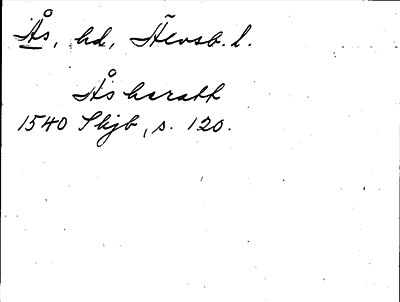 Ås, hd, Älvsb. l.
Ås haratt
1540 Skjb, s. 120.